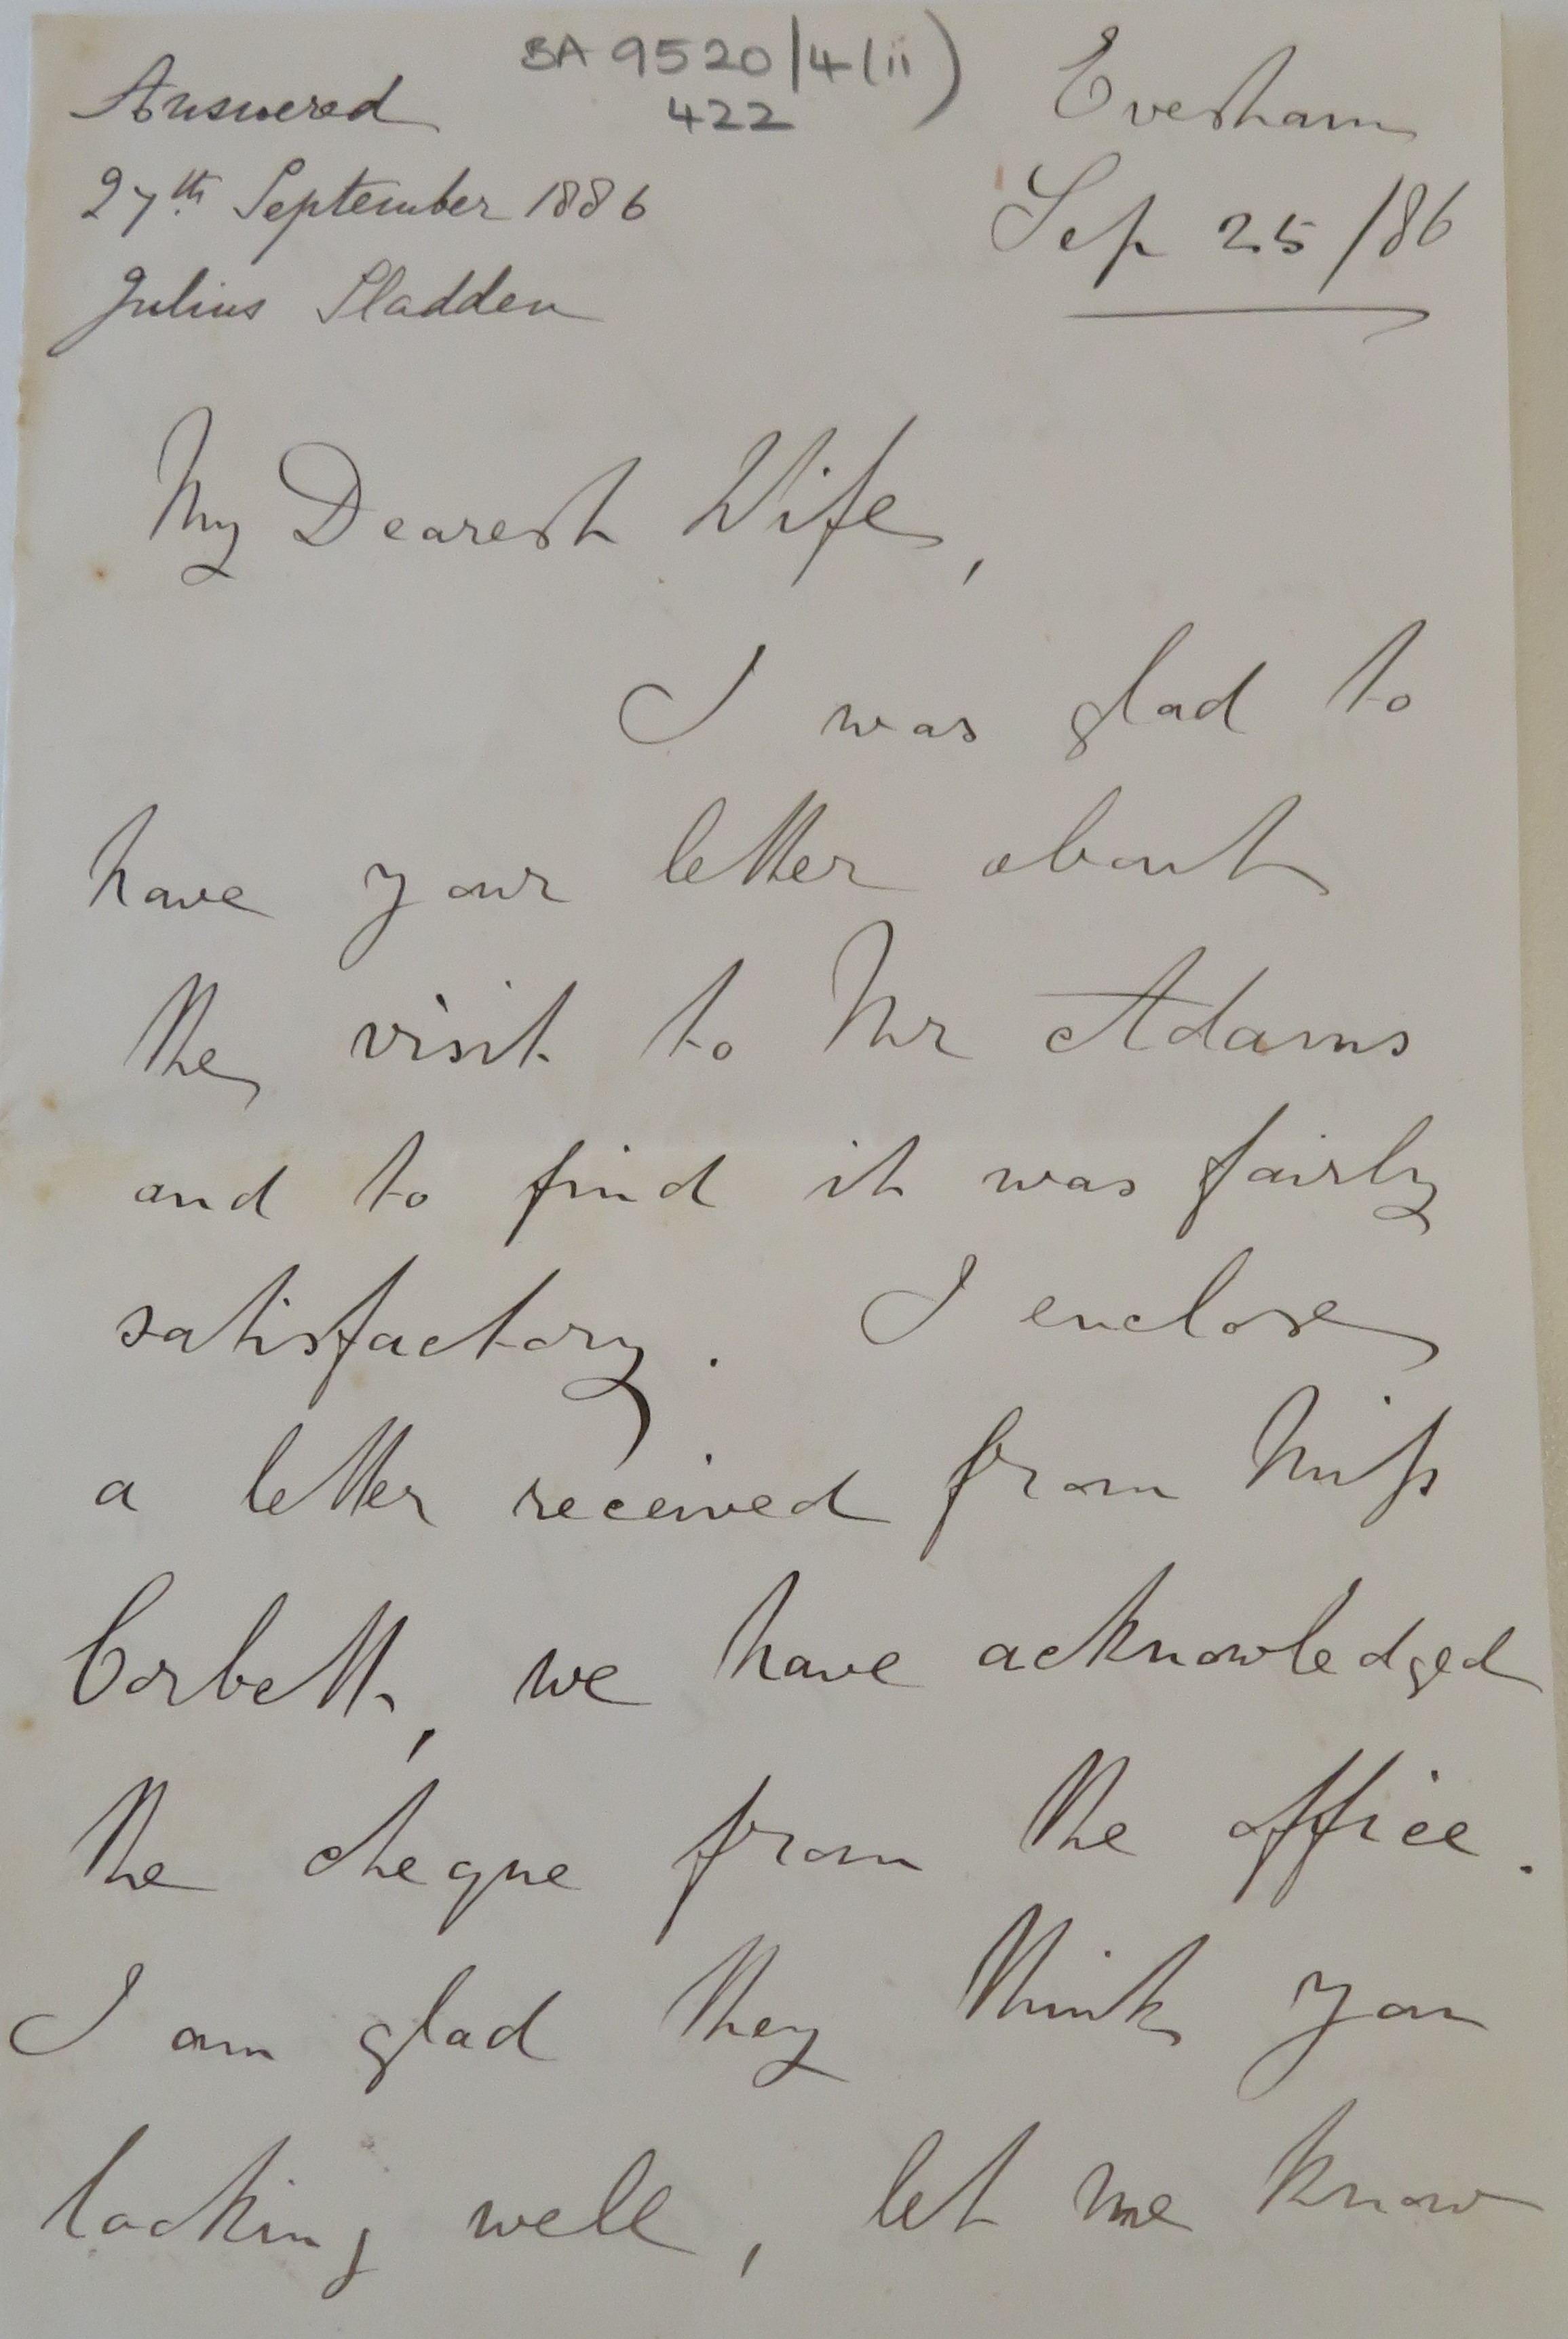 BA 9520/4(ii)
422
Answered
27th September 1886
Julius Sladden
Evesham
Sep 25/86
My Dearest Wife,
I was glad to
have your letter about
the visit to Mr Adams
and to find it was fairly
satisfactory. I enclose
a letter received from Miss
Corbett, we have acknowledged
the cheque from the office.
I am glad they think you
looking well, let me know